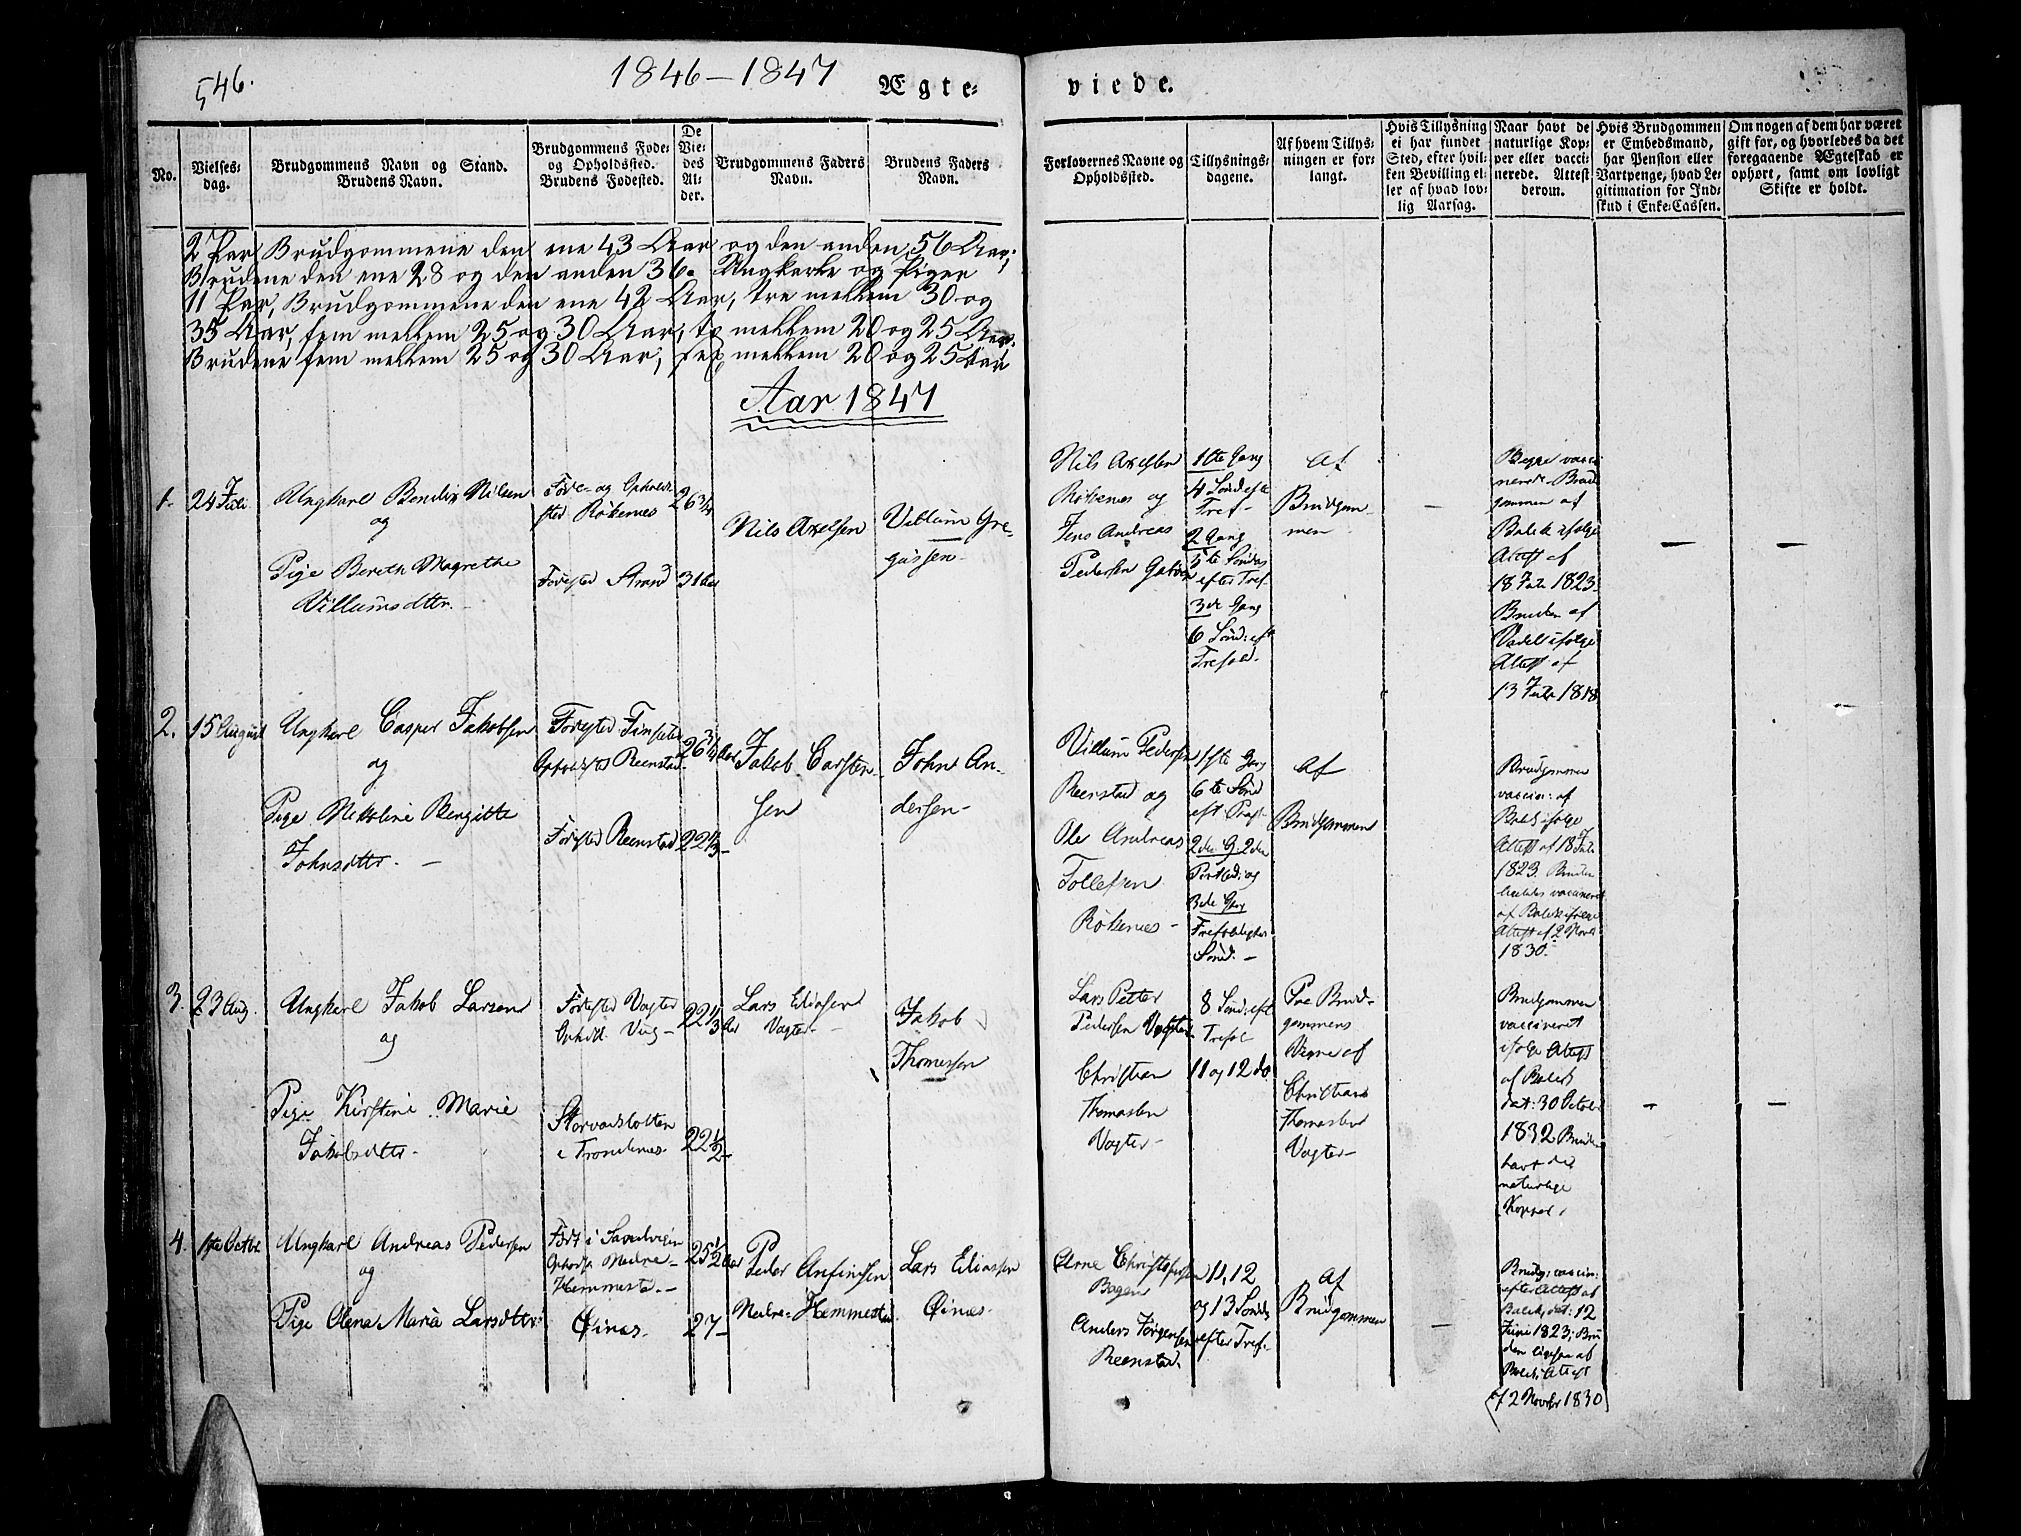 546.
1846 – 1847
Ægte-
viede.
No.
Vielses-
dag.
Brudgommens Navn og Stand.
Brudens Navn.
Brudgommens Føde-
og Opholdssted.
Brudens Fødested.
De
Vie-
des
Al-
der.
Brudgommens Faders
Navn.
Brudens Faders
Navn.
Forlovernes Navne og
Opholdssted.
Tillysnings-
dagene.
Af hvem Tillys-
ningen er for-
langt.
Hvis Tillysning
ei har fundet
Sted, efter hvil-
ken Bevilling el-
ler af hvad lov-
lig Aarsag.
Naar havt de
naturlige Kop-
per eller vacci-
nerede. Attest
derom.
Hvis Brudgommen
er Embedsmand,
har Pension eller
Vartpenge, hvad Le-
gitimation for Ind-
skud i Enke-Cassen.
Om nogen af dem har været
gift før, og hvorledes da det
foregaaende Ægteskab er
ophørt, samt om lovligt
Skifte er holdt.
2 Par Brudgommene den ene 43 Aar og den anden 56 Aar;
Brudene den ene 28 og den anden 36. Ungkarle og Piger
11 Par, Brudgommene den ene 42 Aar, tre mellem 30 og
35 Aar, fem mellem 25 og 30 Aar, to mellem 20 og 25 Aar.
Brudene fem mellem 25 og 30 Aar, sex mellem 20 og 25 Aar
Aar 1847
1.
24 Juli
Ungkarl Bendix Nilsen
og
Pige Bereth Magrethe
Villumsdttr.
Føde- og Opholds
sted Rökenes
Fødested Strand
26 3/4
31 Aar
Nils Axelsen
Villum Gre-
gussen
Nils Axelsen
Rökenes og
Jens Andreas
Pedersen
1ste Gang
4 Sönd eft
Tref-
2 Gang
5te Söndag
efter Tref-
3de Gang
6 Sönd: eft
Trefold.
Af
Brudgom-
men
–
Begge vacci
nerede Brud
gommen af
Balck ifølge
Attest af
18 Juli 1823
Bruden af
ifølge
Attest af
13 Juli 1818
–
–
2.
15 August
Ungkarl Casper Jakobsen
og
Pige Nekoline Bergitte
Johnsdttr. –
Fødested
Opholdssted Reenstad
Fødested Reenstad
26 3/4 Aar
22 1/3 –
Jakob Carsten-
sen
John An-
dersen –
Villum Pedersen
Reenstad og
Ole Andreas
Tollefsen
Rökenes –
1ste Gang
6te Sönd
eft
2den G. 2den
og
3de Gang
Trefoldigheds
Sönd: –
Af
Brudgommen
Brudgommen
vaccin: af
Balck ifølge
Attest af 18 Juli
1823. Bruden
vaccineret
af Balck ifølge
Attest af 2 Novbr
1830.
3.
23 Aug.
Ungkarl Jakob Larsen
og
Pige Kirstine Marie
Jakobsdttr.
Fødested Vogter
Opholdt Vig –
Storvandslotten
i Trondenes
22 1/3 Aar
22 1/2 –
Lars Eliasen
Vogter –
Jakob
Thomessen
Lars Petter
Pedersen Vogter
Christian
Thomasen
Vogter –
8 Sönd: eft
Trefol
11 og 12 do
Paa Brud-
gommens
Vegne af
Christian
Thomasen
Vogter –
Brudgommen
vaccineret
ifølge Attest
af Balck
dat: 30 October
1832 Bruden
havt de
naturlige
Kopper.
–
–
4.
1ste Octbr
Ungkarl Andreas Pedersen
og
Pige Olena Maria Larsdttr:
Født i Sandvigen
Opholdst Nedre-
Hemmesta. –
Øines.
25 1/2 Aar
27 –
Peder Anfinsen
Nedre-Hemmestad
Lars Eliassen
Øines.
Arne Christophersen
Bogen
Anders Jörgensen
Reenstad.
11, 12
og 13 Sönd:
efter Tref.
Af
Brudgommen
–
Brudg: vaccin:
efter Attest af
Balck, dat: 12
Juni 1823; Bru
den ligesaa af
Balck, Attest
2 Novbr 1830